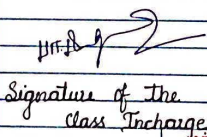 Signature of the
Class Incharge